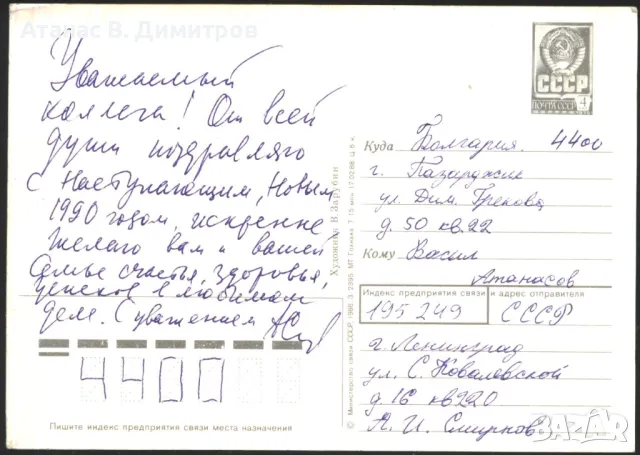 Атанас В. Димитров
Уважаемый
коллега! От всей
души поздравляю
с Наступающим, Новым
1990 годом, искренне
желаю вам и вашей
семье счастья, здоровья,
успехов в любимом
деле. С уважением
4400
Пишите индекс предприятия связи места назначения
Художник В. Зарубин
© Министерство связи СССР, 1986. З. 2395. МТ Гознака.
СССР
ПОЧТА СССР
4
Куда Болгария. 4400
г. Пазарджик
ул. Дим. Грекова
д. 50 кв. 22
Кому Васил
Атанасов
Индекс предприятия связи и адрес отправителя
195249 СССР
г. Ленинград
ул. С. Ковалевской
д. 16 кв 220
А. И. Смирнов
BAZAR